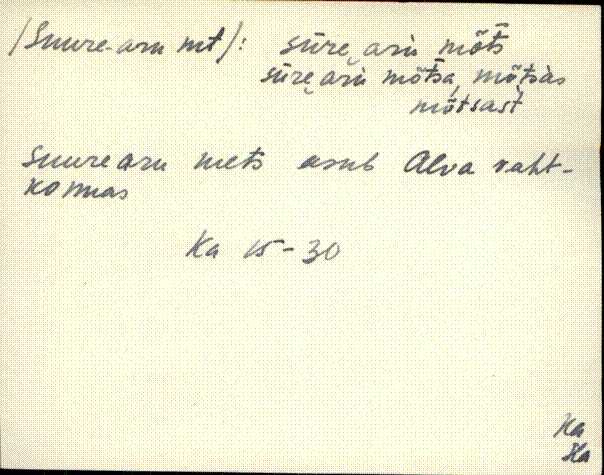 /Suure-aru mt/: sūre‿aru mõts
sūre‿aru mõtsa, mõtsas
mõtsast
Suurearu mets asub Alva vaht-
konnas
Ka 15-30
Ka